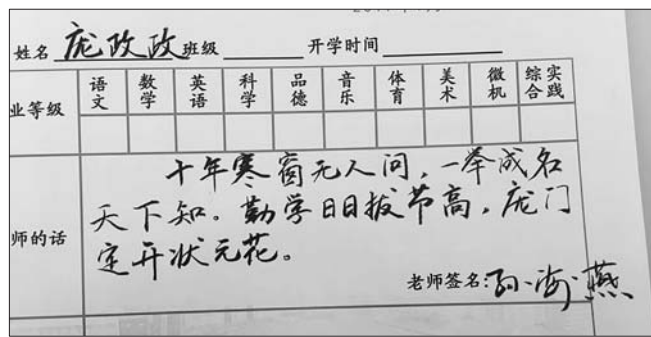 姓名 庞政政 班级 开学时间
业等级 语文 数学 英语 科学 品德 音乐 体育 美术 微机 综合实践
十年寒窗无人问，一举成名
天下知。勤学日日拔节高，庞门
定开状元花。
师的话
老师签名：孙海燕